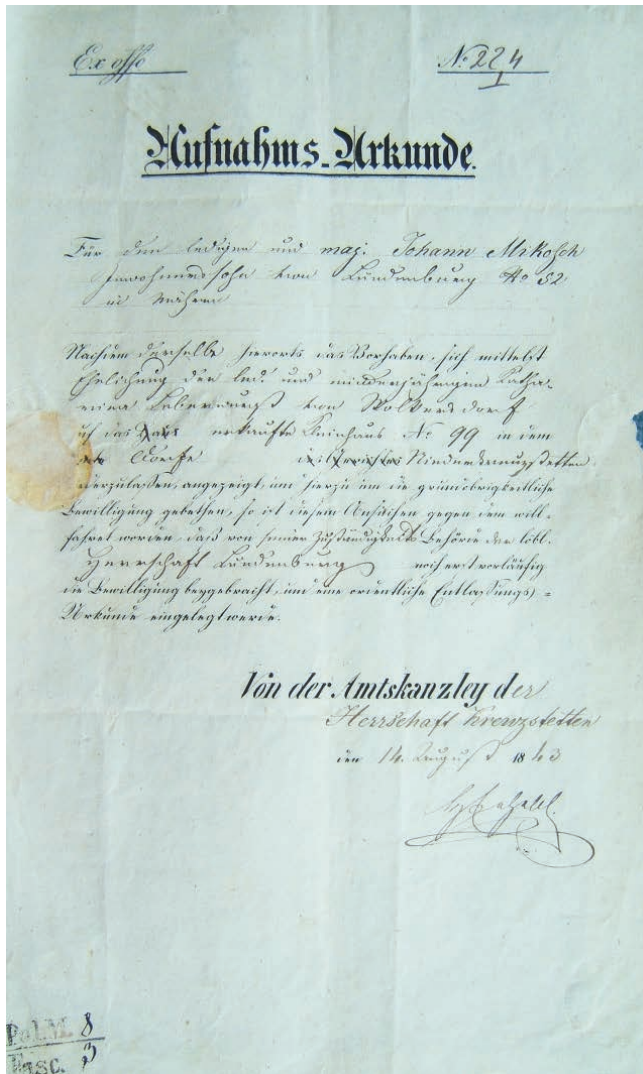 Ex offo
No 224
I
Aufnahms-Urkunde.
Für den ledigen und maj. Johann Mikosch
Inwohnerssohn von Lundenburg No 52
in Mähren
Nachdem derselbe hierorts das Vorhaben, sich mittelst
Ehelichung der led. und minderjährigen Katha-
rina Leberwurst von Wolkersdorf
auf das erkaufte Kleinhaus No 99 in dem
Dorfe Niederkreuzstetten
niederzulassen, angezeigt, und hierzu um die grundobrigkeitliche
Bewilligung gebethen, so ist diesem Ansuchen gegen dem will-
fahret worden, daß von seiner Zuständigkeits Behörde der löbl.
Herrschaft Lundenburg noch erst vorläufig
die Bewilligung beygebracht, und eine ordentliche Entlassungs-
Urkunde eingelegt werde.
Von der Amtskanzley der
Herrschaft Kreuzstetten
den 14. August 1843
Pol.M. 8
Fasc. 3